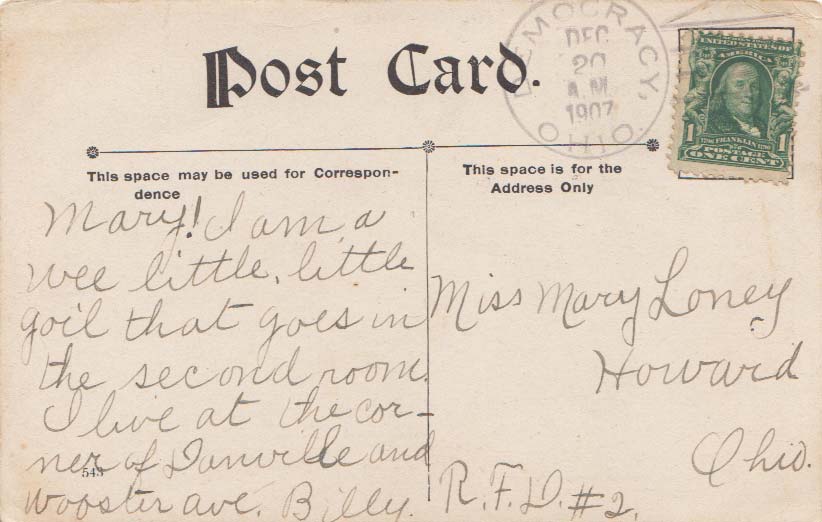 Post Card.
DEMOCRACY,
DEC
20
A.M.
1907
OHIO
UNITED STATES OF
AMERICA
1
FRANKLIN
1
POSTAGE
ONE CENT
This space may be used for Correspon-
dence
This space is for the
Address Only
Mary! I am a
wee little, little
goil that goes in
the second room.
I live at the cor-
ner of Danville and
Wooster ave. Billy.
543
Miss Mary Loney
Howard
Ohio.
R.F.D. #2.